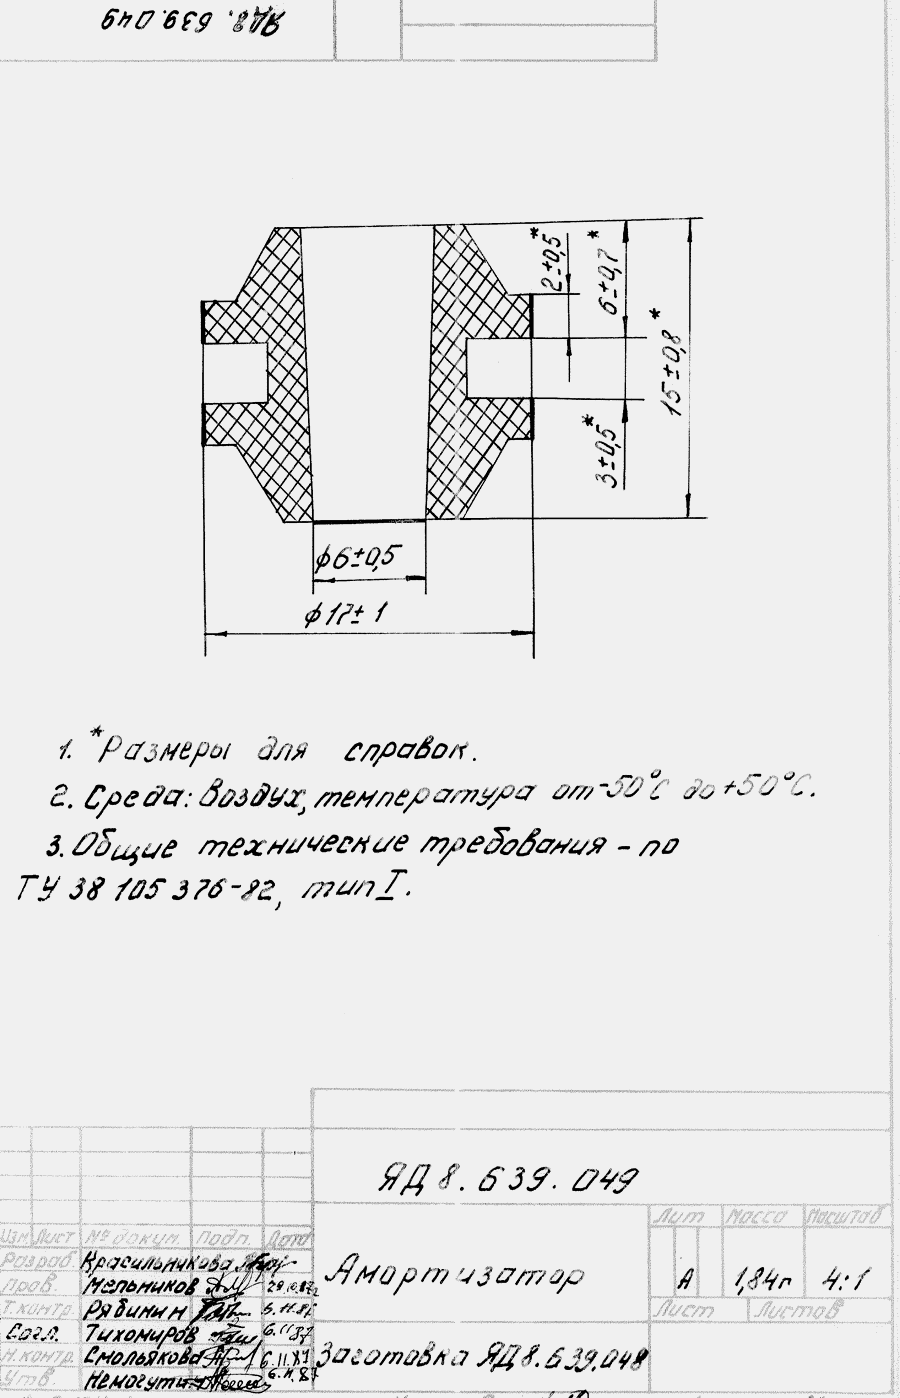 ЯД8. 639. 049
2±0,5*
6±0,7*
15±0,8*
3±0,5*
ф6±0,5
ф17±1
1. *Размеры для справок.
2. Среда: воздух, температура от -50°С до +50°С.
3. Общие технические требования - по
ТУ 38 105 376-82, тип I.
ЯД8. 639. 049
Лит Масса Масштаб
Изм Лист № докум. Подп. Дата
Разраб Красильникова
Амортизатор
А 1,84г 4:1
Пров. Мельников
Т.контр. Рябинин
Лист Листов
Согл. Тихомиров 6.11.87
Н.контр. Смольякова 6.11.87
Заготовка ЯД8.639.048
Утв. 6.11.87